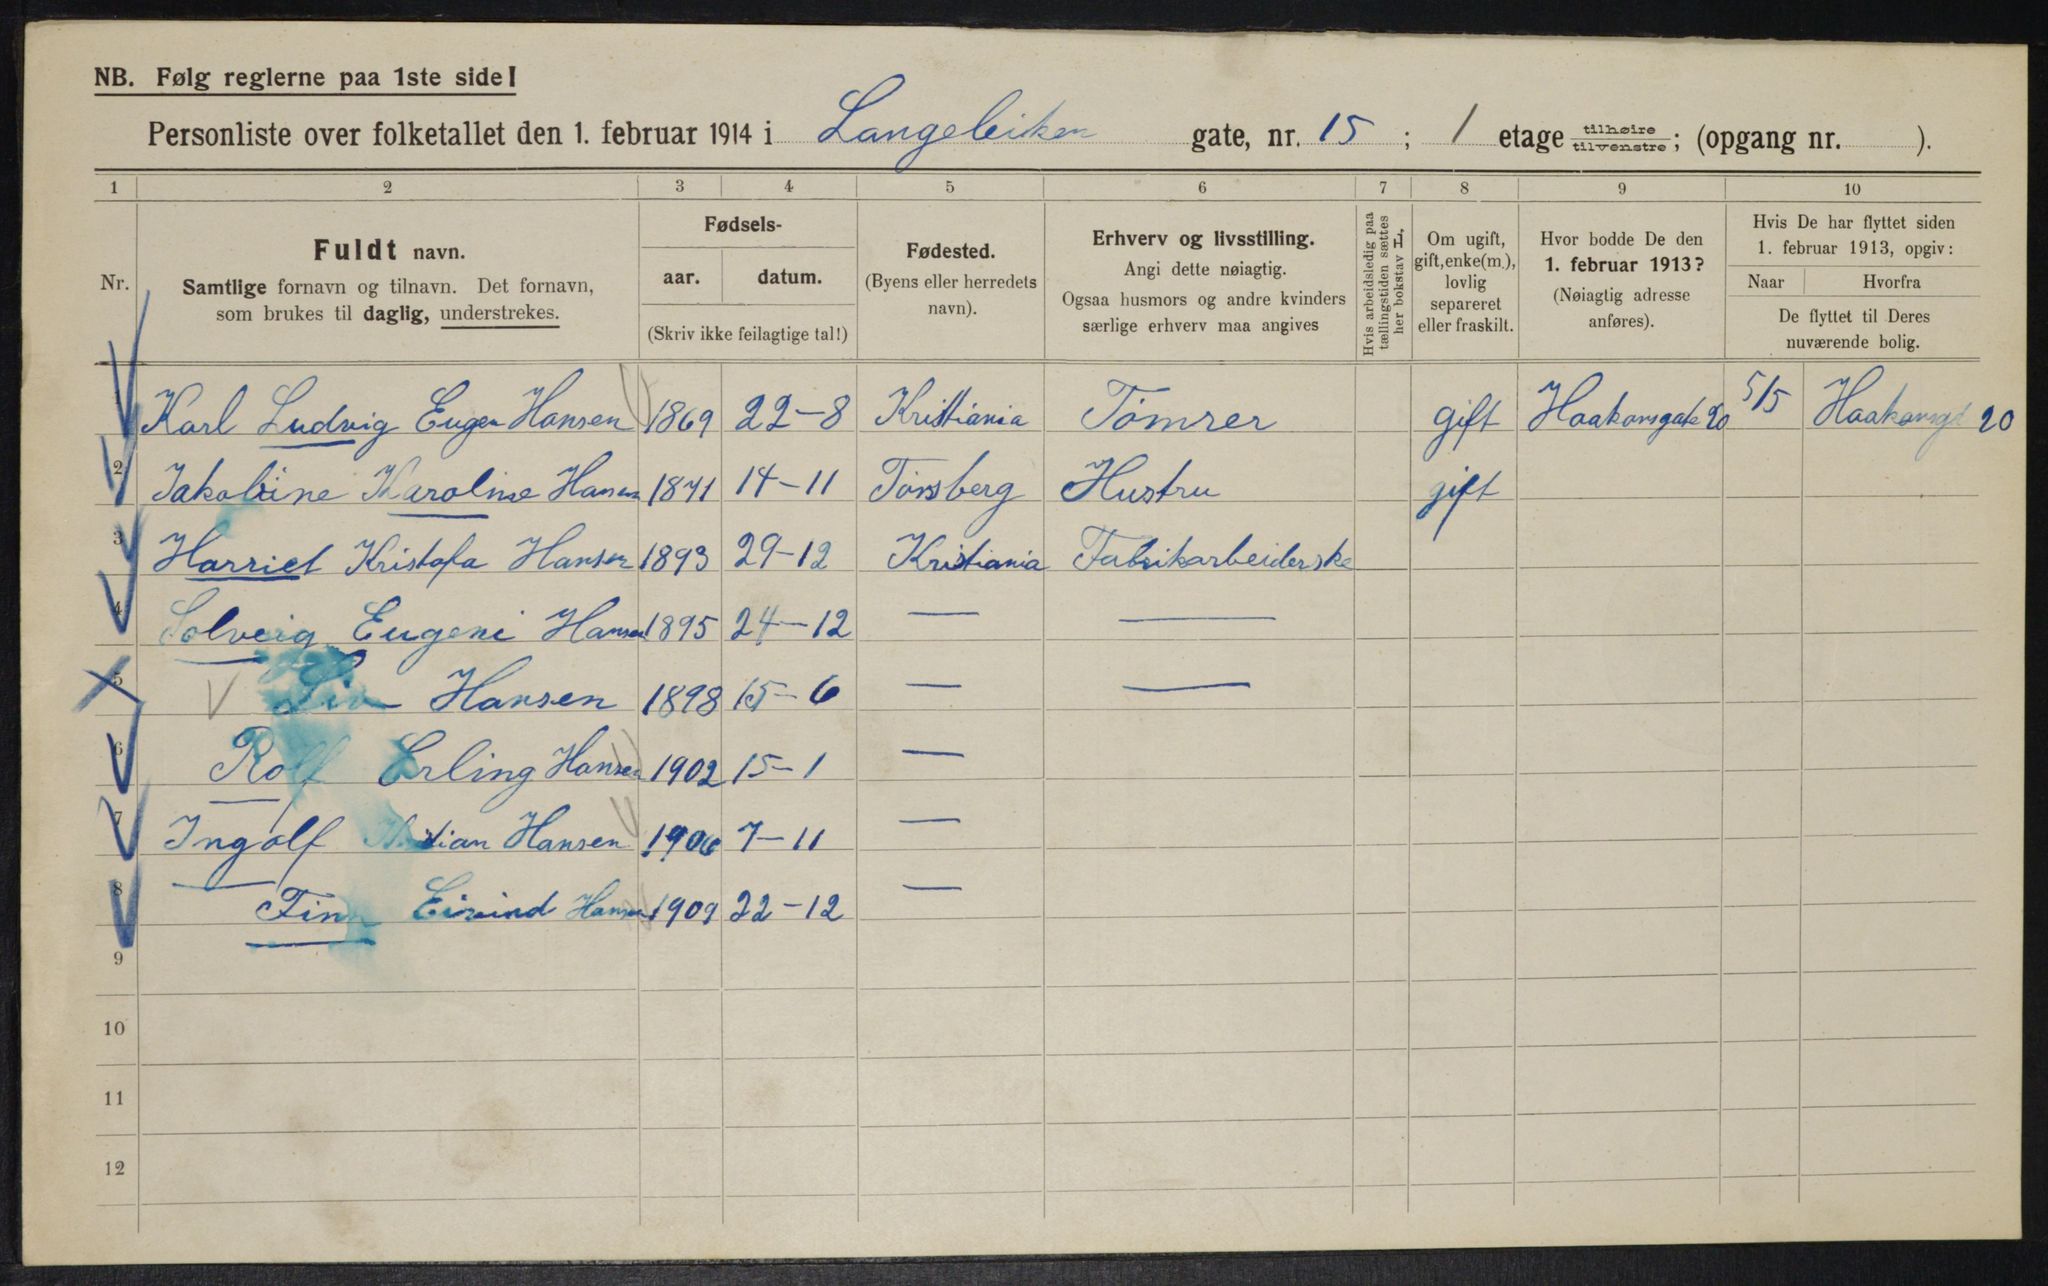 NB. Følg reglerne paa 1ste side!
Personliste over folketallet den 1. februar 1914 i Langeleiken gate, nr. 15 ; 1 etage tilhøire tilvenstre; (opgang nr. ).
1 2 3 4 5 6 7 8 9 10
Nr.
Fuldt navn.
Samtlige fornavn og tilnavn. Det fornavn,
som brukes til daglig, understrekes.
Fødsels-
aar. datum.
(Skriv ikke feilagtige tal!)
Fødested.
(Byens eller herredets
navn).
Erhverv og livsstilling.
Angi dette nøiagtig.
Ogsaa husmors og andre kvinders
særlige erhverv maa angives
Hvis arbeidsledig paa
tællingstiden sættes
her bokstav L.
Om ugift,
gift, enke(m.),
lovlig
separeret
eller fraskilt.
Hvor bodde De den
1. februar 1913?
(Nøiagtig adresse
anføres).
Hvis De har flyttet siden
1. februar 1913, opgiv:
Naar Hvorfra
De flyttet til Deres
nuværende bolig.
1 Karl Ludvig Eugen Hansen 1869 22-8 Kristiania Tømrer gift Haakonsgate 20 5/5 Haakonsgt 20
2 Jakobine Karoline Hansen 1871 14-11 Tønsberg Hustru gift
3 Harriet Kristofa Hansen 1893 29-12 Kristiania Fabrikarbeiderske
4 Solveig Eugeni Hansen 1895 24-12 — —
5 Liv Hansen 1898 15-6 — —
6 Rolf Erling Hansen 1902 15-1 —
7 Ingolf Kristian Hansen 1906 7-11 —
8 Finn Eivind Hansen 1909 22-12 —
9
10
11
12